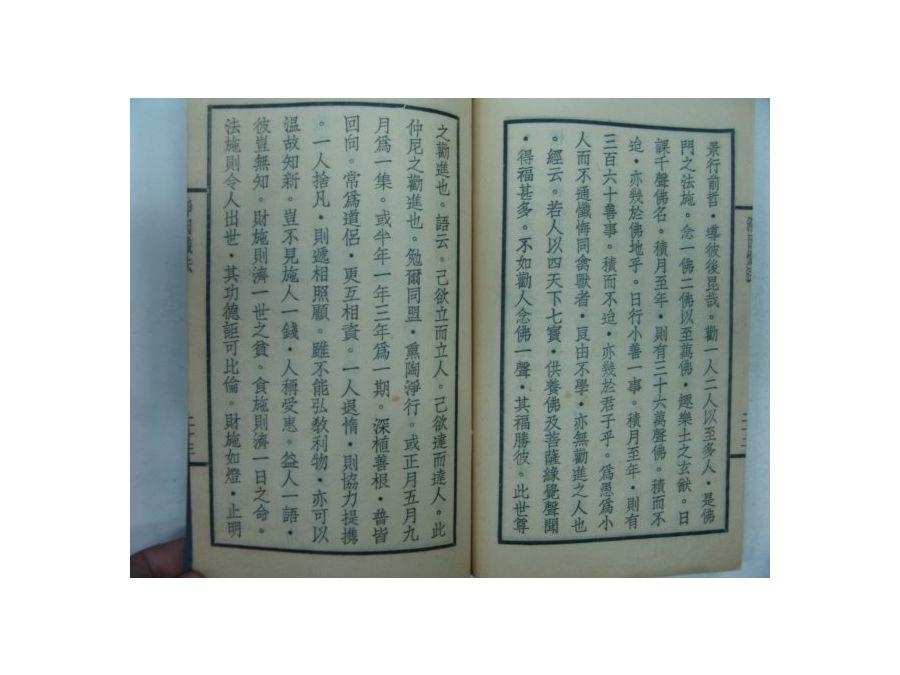 景行前哲・導彼後昆哉。勸一人二人以至多人・是佛
門之法施。念一佛二佛以至萬佛・趣樂土之玄猷。日
課千聲佛名。積月至年・則有三十六萬聲佛。積而不
迨・亦幾於佛地乎。日行小善一事。積月至年・則有
三百六十善事。積而不迨・亦幾於君子乎。為愚為小
人而不通懺悔同禽獸者・良由不學・亦無勸進之人也
。經云。若人以四天下七寶・供養佛及菩薩緣覺聲聞
・得福甚多。不如勸人念佛一聲・其福勝彼。此世尊
之勸進也。語云。己欲立而立人。己欲達而達人。此
仲尼之勸進也。勉爾同盟・熏陶淨行。或正月五月九
月為一集。或半年一年三年為一期。深植善根・普皆
回向。常為道侶・更互相資。一人退惰・則協力提携
。一人捨凡・則遞相照顧。雖不能弘教利物・亦可以
溫故知新。豈不見施人一錢・人稱受惠。益人一語・
彼豈無知。財施則濟一世之貧。食施則濟一日之命。
法施則令人出世・其功德詎可比倫。財施如燈・止明
二十三